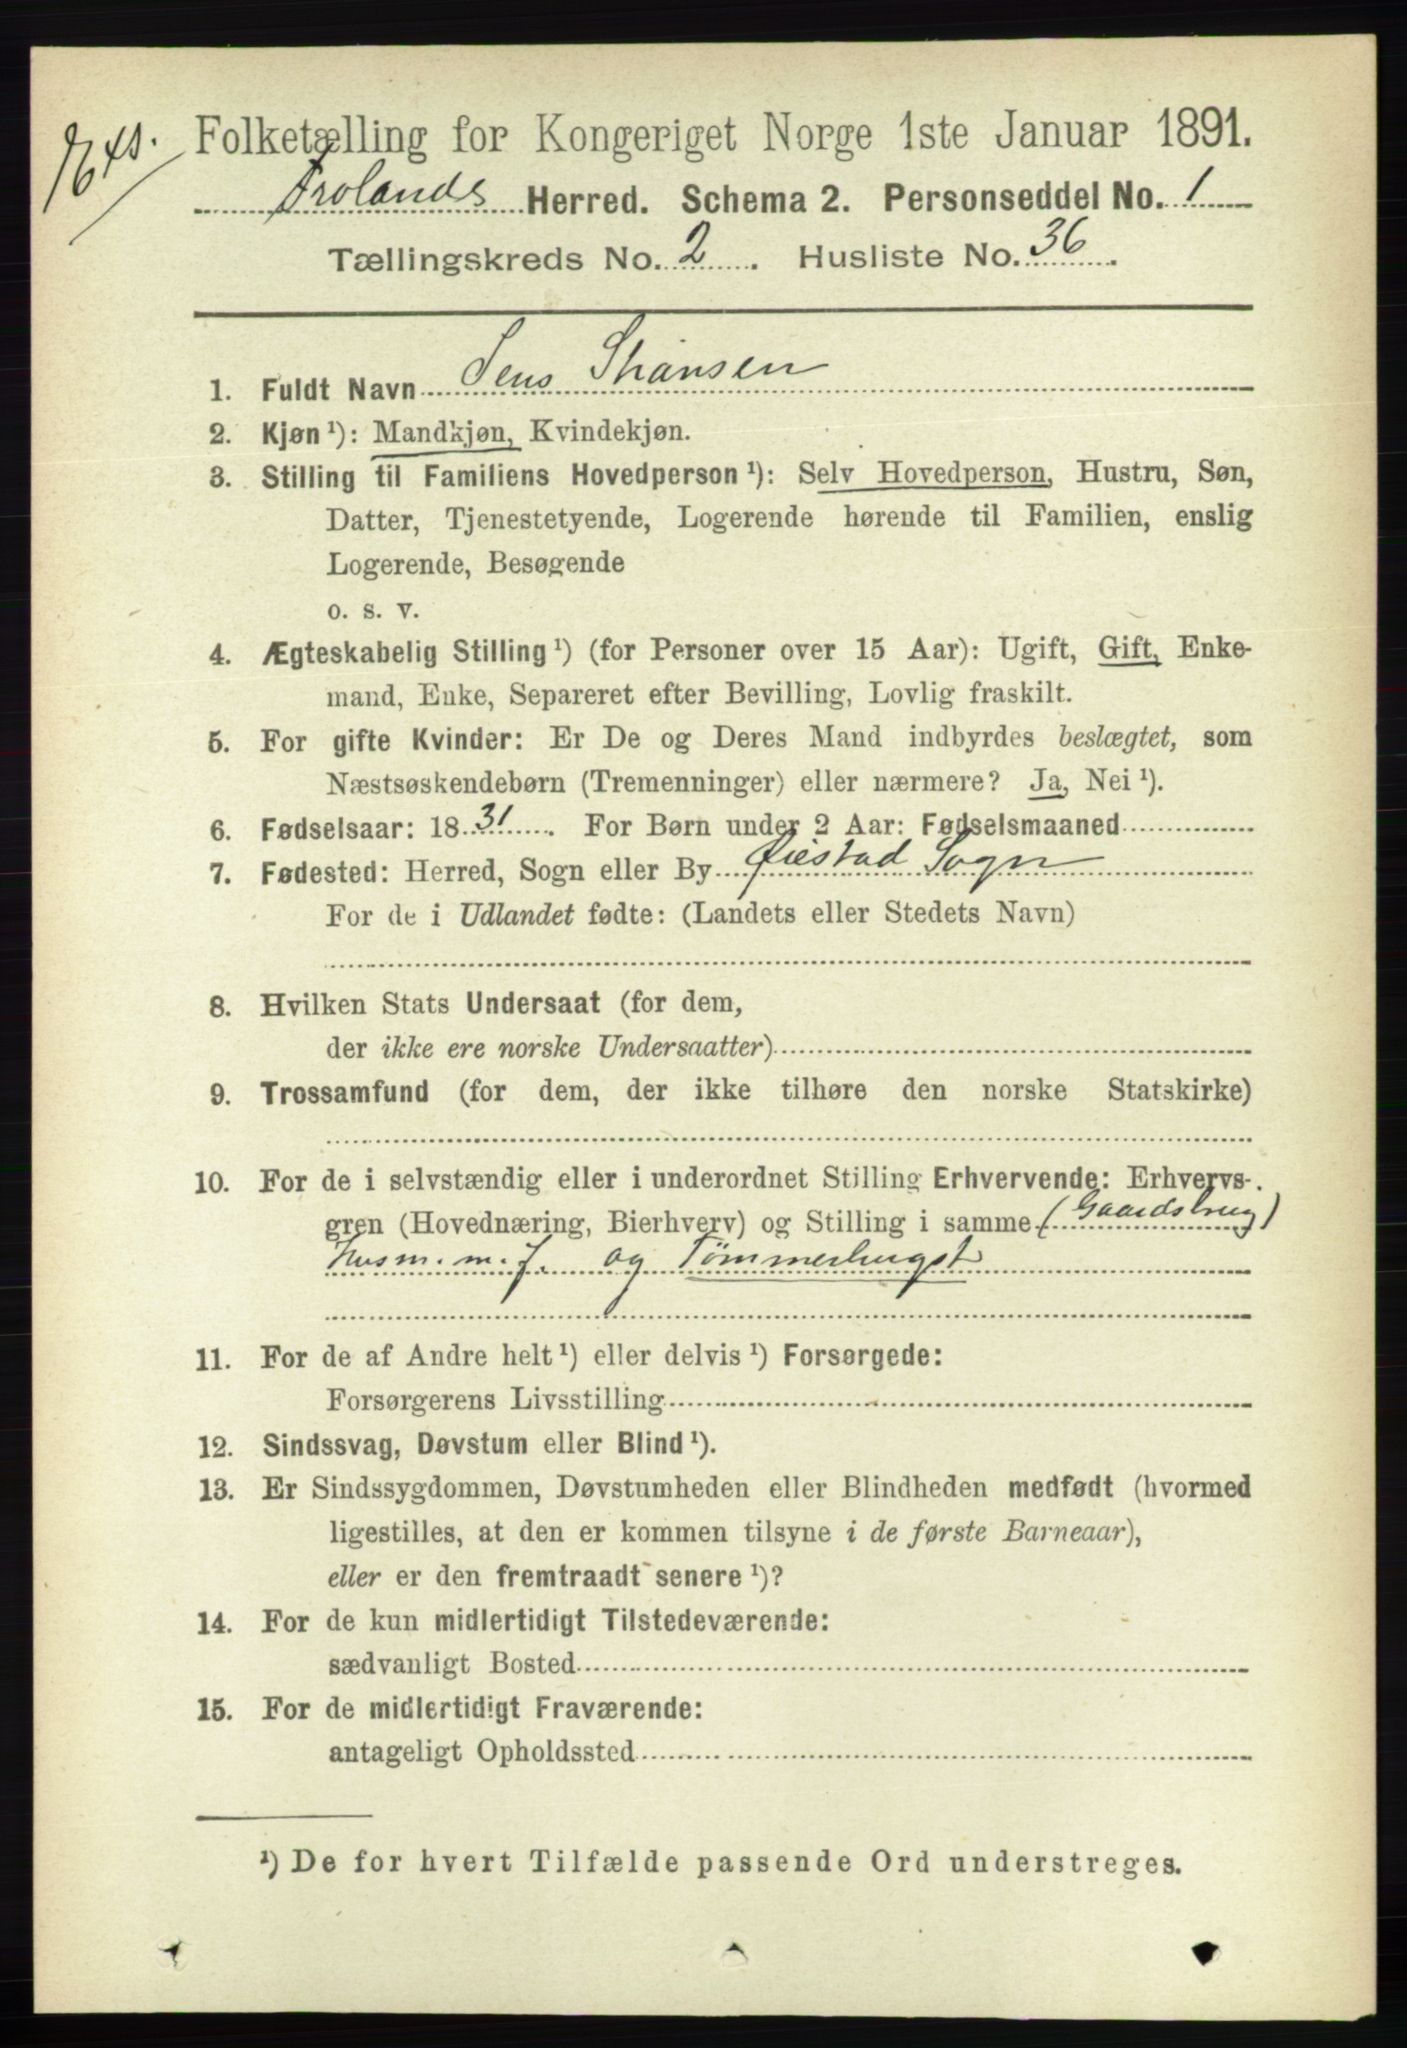 Folketælling for Kongeriget Norge 1ste Januar 1891.
Frolands Herred. Schema 2. Personseddel No. 1
Tællingskreds No. 2. Husliste No. 36.
1. Fuldt Navn Jens
2. Kjøn ¹): Mandkjøn, Kvindekjøn.
3. Stilling til Familiens Hovedperson ¹): Selv Hovedperson, Hustru, Søn,
Datter, Tjenestetyende, Logerende hørende til Familien, enslig
Logerende, Besøgende
o. s. v.
4. Ægteskabelig Stilling ¹) (for Personer over 15 Aar): Ugift, Gift, Enke-
mand, Enke, Separeret efter Bevilling, Lovlig fraskilt.
5. For gifte Kvinder: Er De og Deres Mand indbyrdes beslægtet, som
Næstsøskendebørn (Tremenninger) eller nærmere? Ja, Nei ¹).
6. Fødselsaar: 1831. For Børn under 2 Aar: Fødselsmaaned
7. Fødested: Herred, Sogn eller By Øiestad Sogn
For de i Udlandet fødte: (Landets eller Stedets Navn)
8. Hvilken Stats Undersaat (for dem,
der ikke ere norske Undersaatter)
9. Trossamfund (for dem, der ikke tilhøre den norske Statskirke)
10. For de i selvstændig eller i underordnet Stilling Erhvervende: Erhvervs-
gren (Hovednæring, Bierhverv) og Stilling i samme (Gaardsbrug)
Husm. m. J. og Tømmerhugst
11. For de af Andre helt ¹) eller delvis ¹) Forsørgede:
Forsørgerens Livsstilling
12. Sindssvag, Døvstum eller Blind ¹).
13. Er Sindssygdommen, Døvstumheden eller Blindheden medfødt (hvormed
ligestilles, at den er kommen tilsyne i de første Barneaar),
eller er den fremtraadt senere ¹)?
14. For de kun midlertidigt Tilstedeværende:
sædvanligt Bosted
15. For de midlertidigt Fraværende:
antageligt Opholdssted
¹) De for hvert Tilfælde passende Ord understreges.